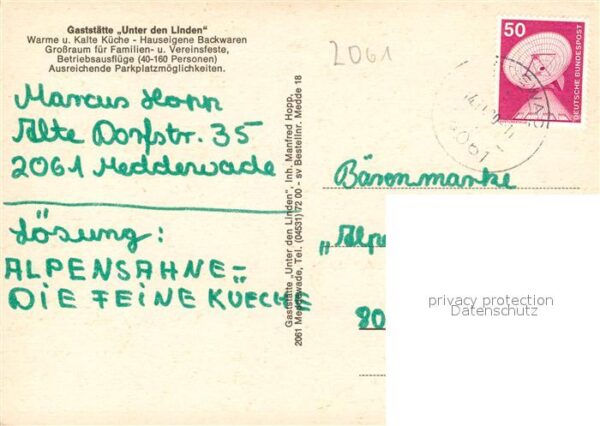 Gaststätte „Unter den Linden“
Warme u. Kalte Küche - Hauseigene Backwaren
Großraum für Familien- u. Vereinsfeste,
Betriebsausflüge (40-160 Personen)
Ausreichende Parkplatzmöglichkeiten.
Marcus Hopp
Alte Dorfstr. 35
2061 Meddewade
Lösung:
ALPENSAHNE =
DIE FEINE KUECHE
Gaststätte „Unter den Linden“, Inh. Manfred Hopp,
2061 Meddewade, Tel. (04531) 72 00 - sv Bestellnr. Medde 18
2061
50
DEUTSCHE BUNDESPOST
2061
Bärenmarke
„Alpe
80
privacy protection
Datenschutz